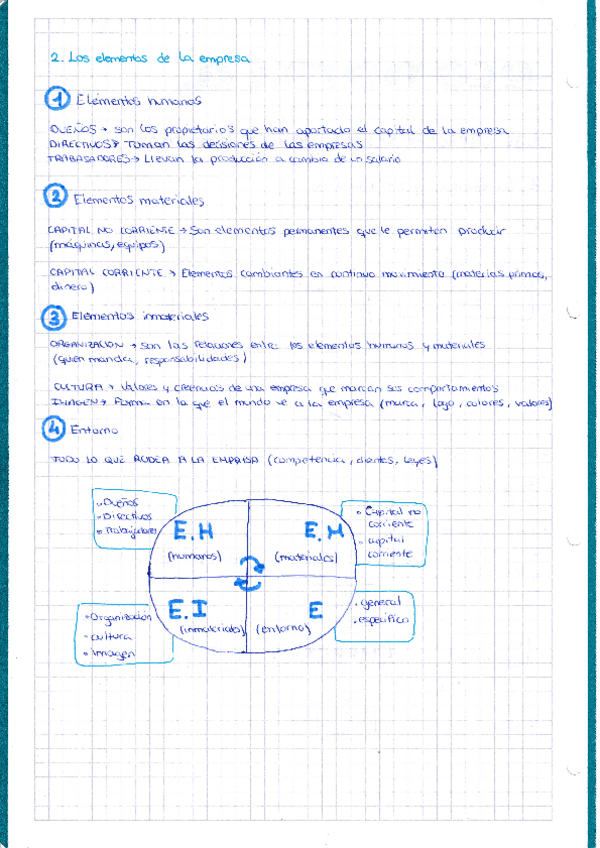 2. Los elementos de la empresa
1 Elementos humanos
DUEÑOS → son los propietarios que han aportado el capital de la empresa
DIRECTIVOS → Toman las decisiones de las empresas
TRABAJADORES → Llevan la producción a cambio de un salario
2 Elementos materiales
CAPITAL NO CORRIENTE → Son elementos permanentes que le permiten producir
(máquinas, equipos)
CAPITAL CORRIENTE → Elementos cambiantes en continuo movimiento (materias primas,
dinero)
3 Elementos inmateriales
ORGANIZACIÓN → son las relaciones entre los elementos humanos y materiales
(quien manda, responsabilidades)
CULTURA → Valores y creencias de una empresa que marcan sus comportamientos
IMAGEN → Forma en la que el mundo ve a la empresa (marca, logo, colores, valores)
4 Entorno
TODO LO QUE RODEA A LA EMPRESA (competencia, clientes, leyes)
• Dueños
• Directivos
• Trabajadores
E.H
(humanos)
E.M
(materiales)
• Capital no
corriente
• capital
corriente
• Organización
• cultura
• imagen
E.I
(inmateriales)
E
(entorno)
• general
• específico